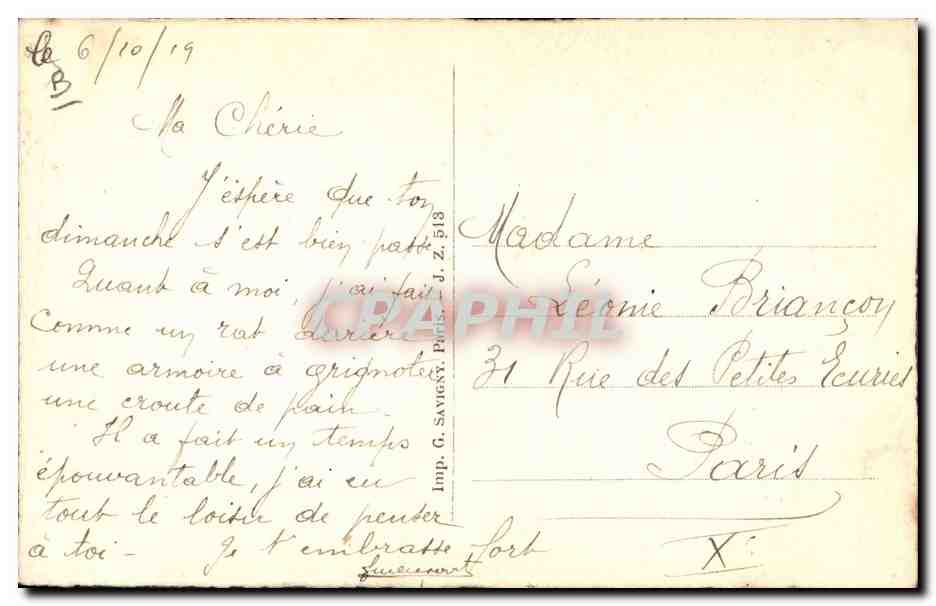 le 6/10/19
Ma Chérie
J'éspère que ton
dimanche s'est bien passé
Quant à moi, j'ai fait
comme un rat derrière
une armoire à grignoter
une croute de pain.
Il a fait un temps
épouvantable, j'ai eu
tout le loisir de penser
à toi - Je t'embrasse fort
Imp. G. SAVIGNY, Paris. - J. Z. 513
CPAPHIL
Madame
Léonie Briançon
31 Rue des Petites Ecuries
Paris
Xe